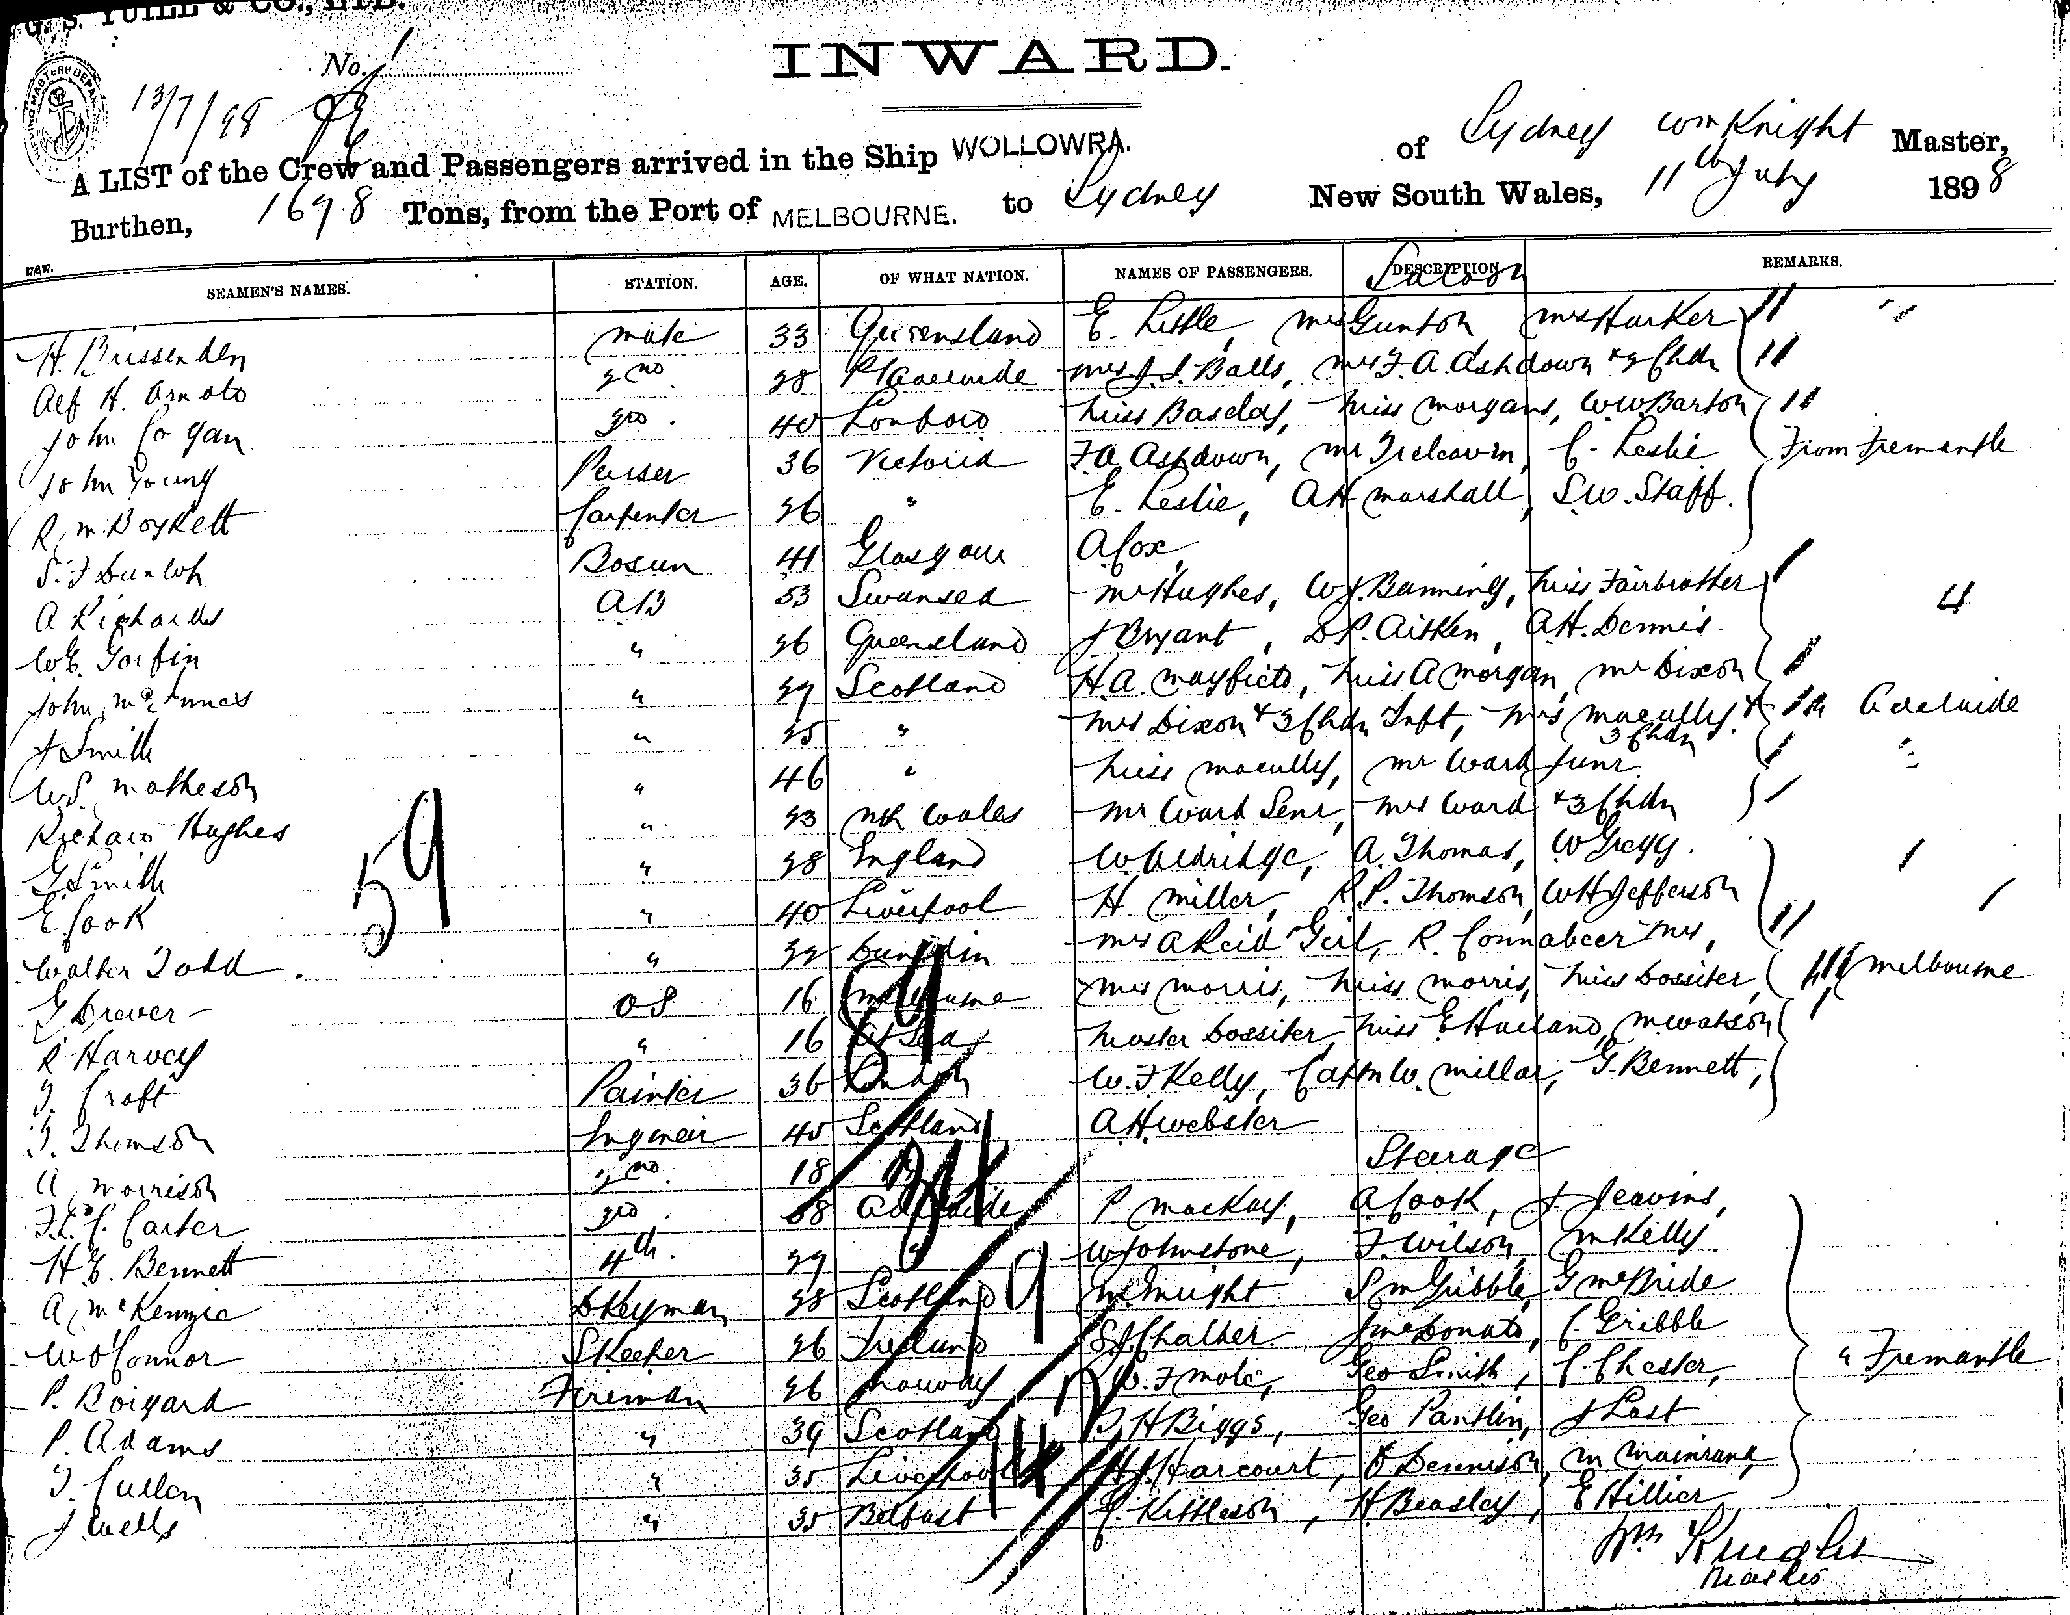 G. S. YUILL & CO., LTD.
No. 1
INWARD.
13/7/98
A LIST of the Crew and Passengers arrived in the Ship WOLLOWRA. of Sydney Wm Knight Master,
Burthen, 1698 Tons, from the Port of MELBOURNE. to Sydney New South Wales, 11th July 1898
SEAMEN'S NAMES. STATION. AGE. OF WHAT NATION. NAMES OF PASSENGERS. DESCRIPTION REMARKS.
Saloon
H. Brissenden mate 33 Queensland E. Little, Mrs Gunton Mrs Harker
Alf H. Arnold 2nd 28 Pt Adelaide Mrs J. S. Balls, Mrs F. A. Ashdown & 2 Chdn
John Cogan 3rd 40 London Miss Basclay, Miss Morgans, W W Barton
John Young Purser 36 Victoria F A Ashdown, Mr Treleavin, C. Leslie From Fremantle
R. M. Boykett Carpenter 26 " E. Leslie, A H Marshall, S. W. Staff.
S. F Dunlop Bosun 41 Glasgow A Cox
A Richards AB 53 Swansea Mr Hughes, W J. Banning, Miss Fairbrother 4
W. G. Gorfin " 26 Queensland J Bryant, D P. Aitken, A. H. Dennis
John McInnes " 27 Scotland H A. Mayfield, Miss A Morgan, Mr Dixon
J Smith " 25 " Mrs Dixon & 3 Chdn Inft, Mrs Macully & 3 Chdn " Adelaide
W. S. Matheson " 46 " Miss Macully, Mr Ward Junr
Richard Hughes " 23 Nth Wales Mr Ward Senr, Mrs Ward & 3 Chdn
G Smith " 28 England W. Aldridge, A. Thomas, W Gregg.
E Cook " 40 Liverpool H. Miller, R. P. Thomson, W H Jefferson
59
Walter Todd " 32 Dunedin Mrs A Reid Girl, R. Connabeer Mrs,
G Drever OS 16 Melbourne Mrs Morris, Miss Morris, Miss Dossiter, Melbourne
R Harvey " 16 At Sea Master Dossiter, Miss E Harland, M Watson
J. Croft Painter 36 London W. F Kelly, Captn W. Millar, G. Bennett,
T. Thomson Engineer 45 Scotland A. H. Webster
Stearage
A Morrison 2nd 18
F. L. C. Carter 3rd 28 Adelaide P. Mackay, A Cook, J Jeavins,
H G. Bennett 4th. 27 " W Johnstone, F. Wilson, M Kelly
A McKenzie DKeyman 28 Scotland W. Knight S M Gribble, G McBride
W O'Connor SKeeper 26 Ireland S J Chalker J McDonald, C. Gribble
P. Boigard Fireman 26 Norway W. F Mole, Geo Smith, C. Chester, " Fremantle
P. Adams " 39 Scotland R H Biggs, Geo Pantlin, J Last
T. Cullen " 35 Liverpool H J. Harcourt, O Dennison,
J Wells " 35 Belfast C. Kittleson, H. Beasley, E Hillier
Wm Knight
Master